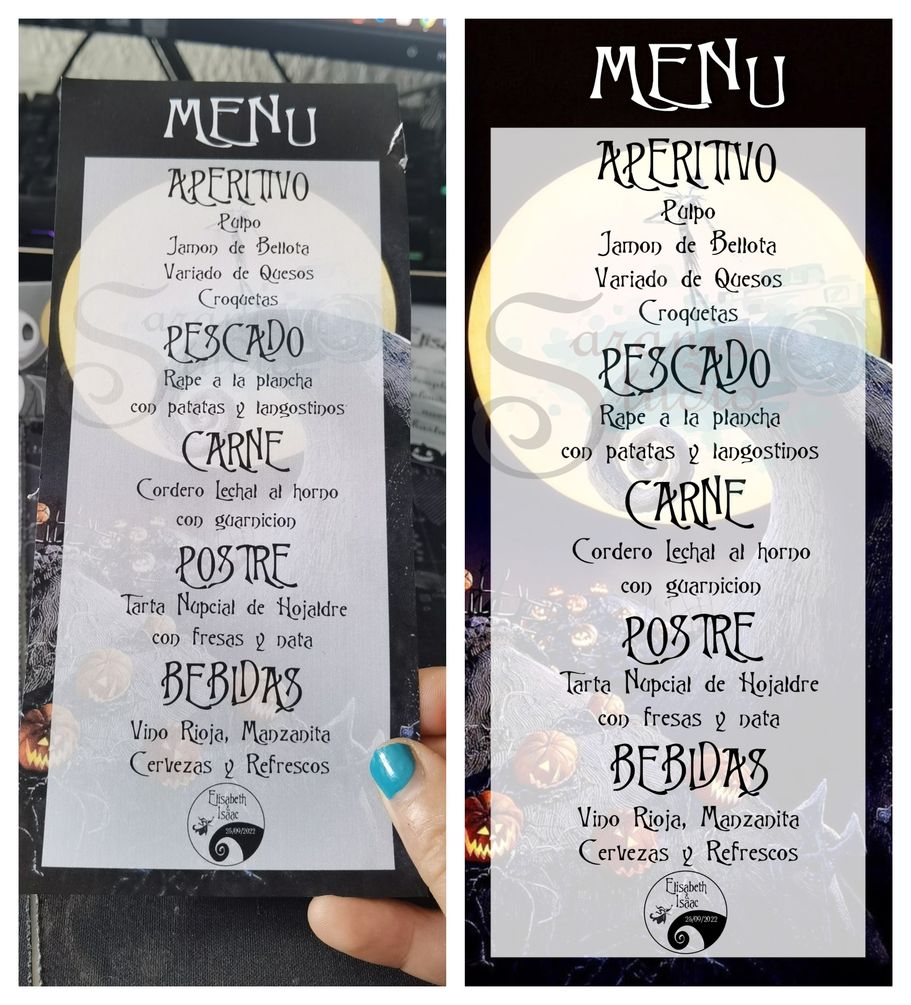 MENU
APERITIVO
Pulpo
Jamon de Bellota
Variado de Quesos
Croquetas
PESCADO
Rape a la plancha
con patatas y langostinos
CARNE
Cordero Lechal al horno
con guarnicion
POSTRE
Tarta Nupcial de Hojaldre
con fresas y nata
BEBIDAS
Vino Rioja, Manzanita
Cervezas y Refrescos
Elisabeth
&
Isaac
25/09/2022
MENU
APERITIVO
Pulpo
Jamon de Bellota
Variado de Quesos
Croquetas
PESCADO
Rape a la plancha
con patatas y langostinos
CARNE
Cordero Lechal al horno
con guarnicion
POSTRE
Tarta Nupcial de Hojaldre
con fresas y nata
BEBIDAS
Vino Rioja, Manzanita
Cervezas y Refrescos
Elisabeth
&
Isaac
25/09/2022